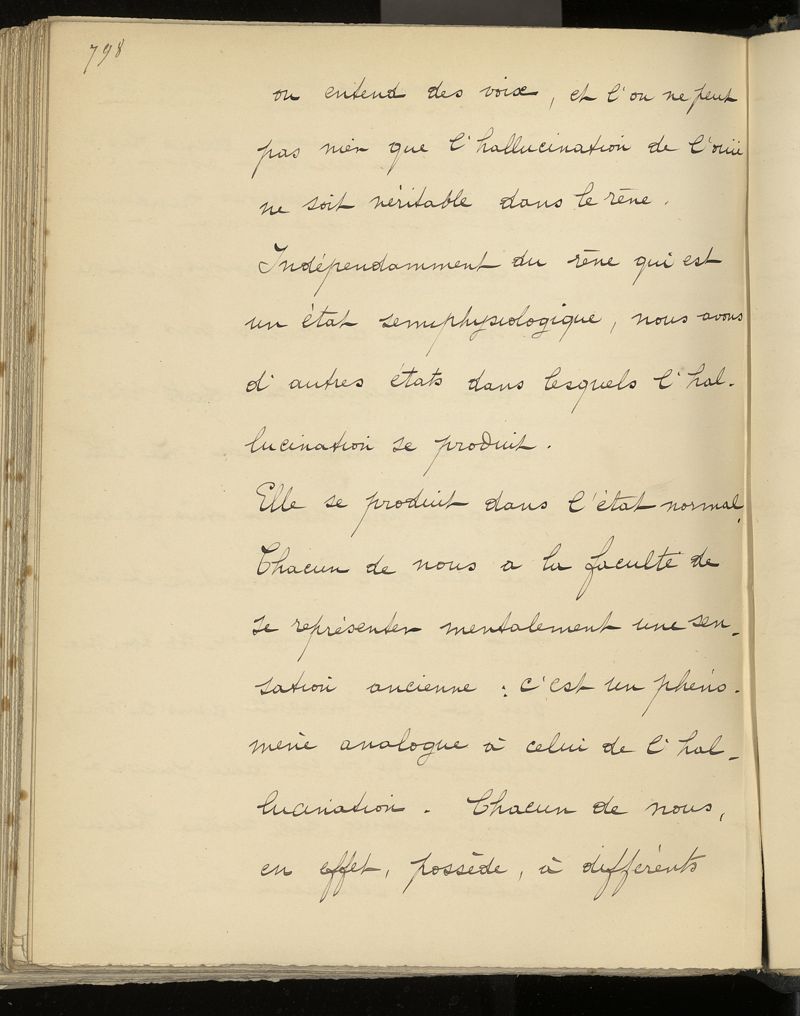 798
on entend des voix, et l'on ne peut
pas nier que l'hallucination de l'ouïe
ne soit véritable dans le rêve.
Indépendamment du rêve qui est
un état semiphysiologique, nous avons
d'autres états dans lesquels l'hal-
lucination se produit.
Elle se produit dans l'état normal.
Chacun de nous a la faculté de
se représenter mentalement une sen-
sation ancienne : c'est un phéno-
mène analogue à celui de l'hal-
lucination. Chacun de nous,
en effet, possède, à différents